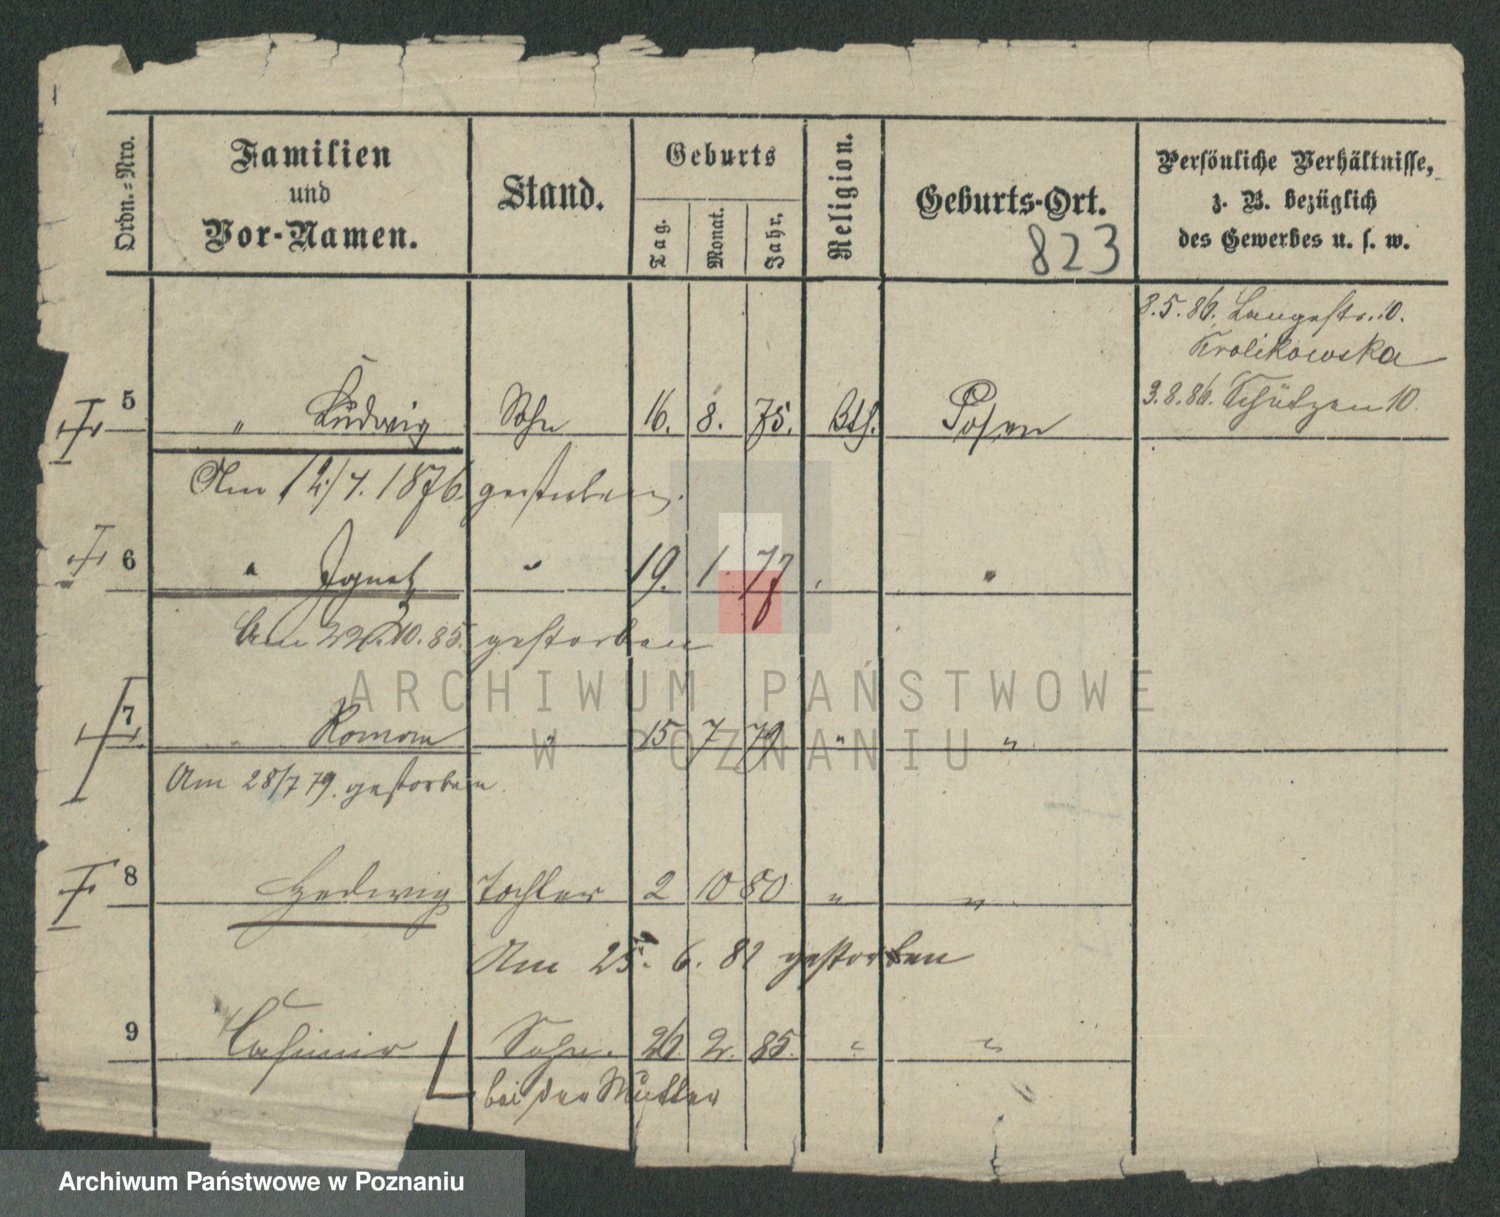 Ordn.=Nro.
Familien
und
Vor-Namen.
Stand.
Geburts
Tag.
Monat.
Jahr.
Religion.
Geburts-Ort.
823
Persönliche Verhältnisse,
z. B. bezüglich
des Gewerbes u. s. w.
3.5.86. Langestr. 10.
Krolikowska
3.8.86. Schützen 10.
5 " Ludwig Sohn 16. 8. 75. Kth. Posen
Am 12/7. 1876 gestorben.
6 " Ignatz " 19. 1. 77 "
Am 22.10.85. gestorben
7 " Roman " 15 7 79 " "
Am 28/7 79. gestorben
8 Hedwig Tochter 2 10 80 " "
Am 25. 6. 82 gestorben
9 Casimir Sohn. 26. 2. 85. " "
bei der Mutter
ARCHIWUM PAŃSTWOWE
W POZNANIU
Archiwum Państwowe w Poznaniu